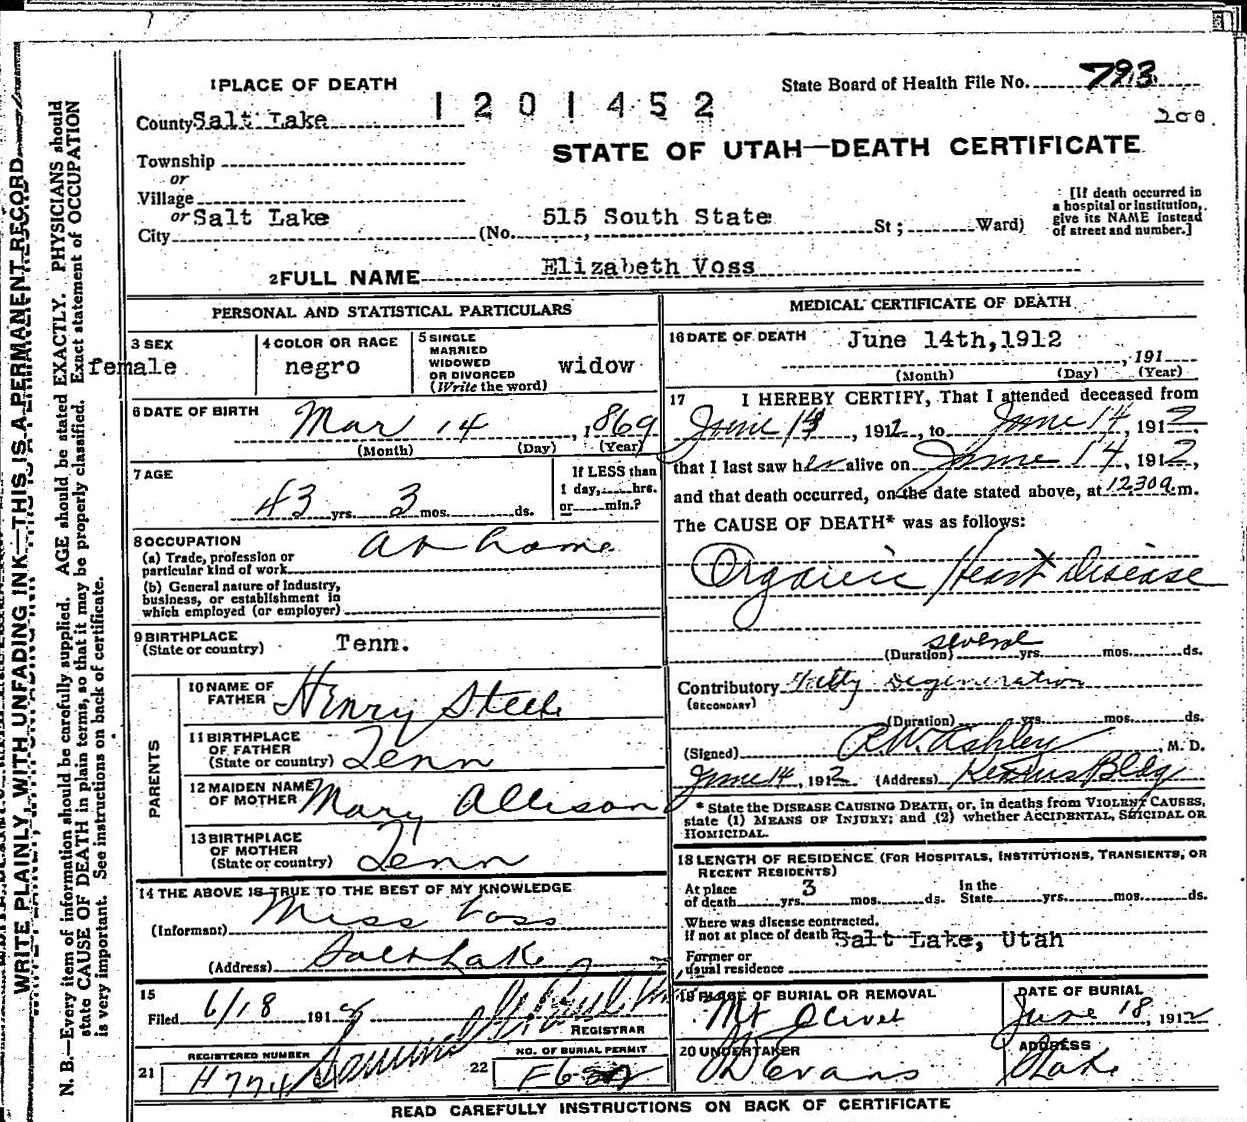 1 PLACE OF DEATH
State Board of Health File No. 793
County Salt Lake
1201452
200.
Township
STATE OF UTAH—DEATH CERTIFICATE
or
Village
or Salt Lake
City
(No. 515 South State St; Ward)
[If death occurred in
a hospital or institution,
give its NAME instead
of street and number.]
2 FULL NAME Elizabeth Voss
PERSONAL AND STATISTICAL PARTICULARS
3 SEX
female
4 COLOR OR RACE
negro
5 SINGLE
MARRIED
WIDOWED
OR DIVORCED
(Write the word)
widow
6 DATE OF BIRTH
Mar 14, 1869
(Month) (Day) (Year)
7 AGE
43 yrs. 3 mos. ds.
If LESS than
1 day, hrs.
or min.?
8 OCCUPATION
at home
(a) Trade, profession or
particular kind of work
(b) General nature of industry,
business, or establishment in
which employed (or employer)
9 BIRTHPLACE
(State or country)
Tenn.
PARENTS
10 NAME OF
FATHER
Henry Steele
11 BIRTHPLACE
OF FATHER
(State or country)
Tenn
12 MAIDEN NAME
OF MOTHER
Mary Allison
13 BIRTHPLACE
OF MOTHER
(State or country)
Tenn
14 THE ABOVE IS TRUE TO THE BEST OF MY KNOWLEDGE
(Informant) Miss Voss
(Address) Salt Lake
15
Filed 6/18 191
REGISTRAR
21
REGISTERED NUMBER
22
NO. OF BURIAL PERMIT
MEDICAL CERTIFICATE OF DEATH
16 DATE OF DEATH June 14th, 1912
, 191
(Month) (Day) (Year)
17 I HEREBY CERTIFY, That I attended deceased from
June 13, 1912, to June 14, 1912,
that I last saw her alive on June 14, 1912,
and that death occurred, on the date stated above, at 12.30 a.m.
The CAUSE OF DEATH* was as follows:
Organic Heart Disease
several
(Duration) yrs. mos. ds.
Contributory Fatty Degeneration
(SECONDARY)
(Duration) yrs. mos. ds.
(Signed) R.W. Ashley, M. D.
June 14, 1912 (Address) Bldg
* State the DISEASE CAUSING DEATH, or, in deaths from VIOLENT CAUSES,
state (1) MEANS OF INJURY; and (2) whether ACCIDENTAL, SUICIDAL OR
HOMICIDAL.
18 LENGTH OF RESIDENCE (FOR HOSPITALS, INSTITUTIONS, TRANSIENTS, OR
RECENT RESIDENTS)
At place
of death 3 yrs. mos. ds.
In the
State yrs. mos. ds.
Where was disease contracted,
if not at place of death? Salt Lake, Utah
Former or
usual residence
19 PLACE OF BURIAL OR REMOVAL
Mt Olivet
DATE OF BURIAL
June 18, 1912
20 UNDERTAKER
Evans
ADDRESS
S Lake
READ CAREFULLY INSTRUCTIONS ON BACK OF CERTIFICATE
WRITE PLAINLY, WITH UNFADING INK—THIS IS A PERMANENT RECORD
N. B.—Every item of information should be carefully supplied. AGE should be stated EXACTLY. PHYSICIANS should
state CAUSE OF DEATH in plain terms, so that it may be properly classified. Exact statement of OCCUPATION
is very important. See instructions on back of certificate.